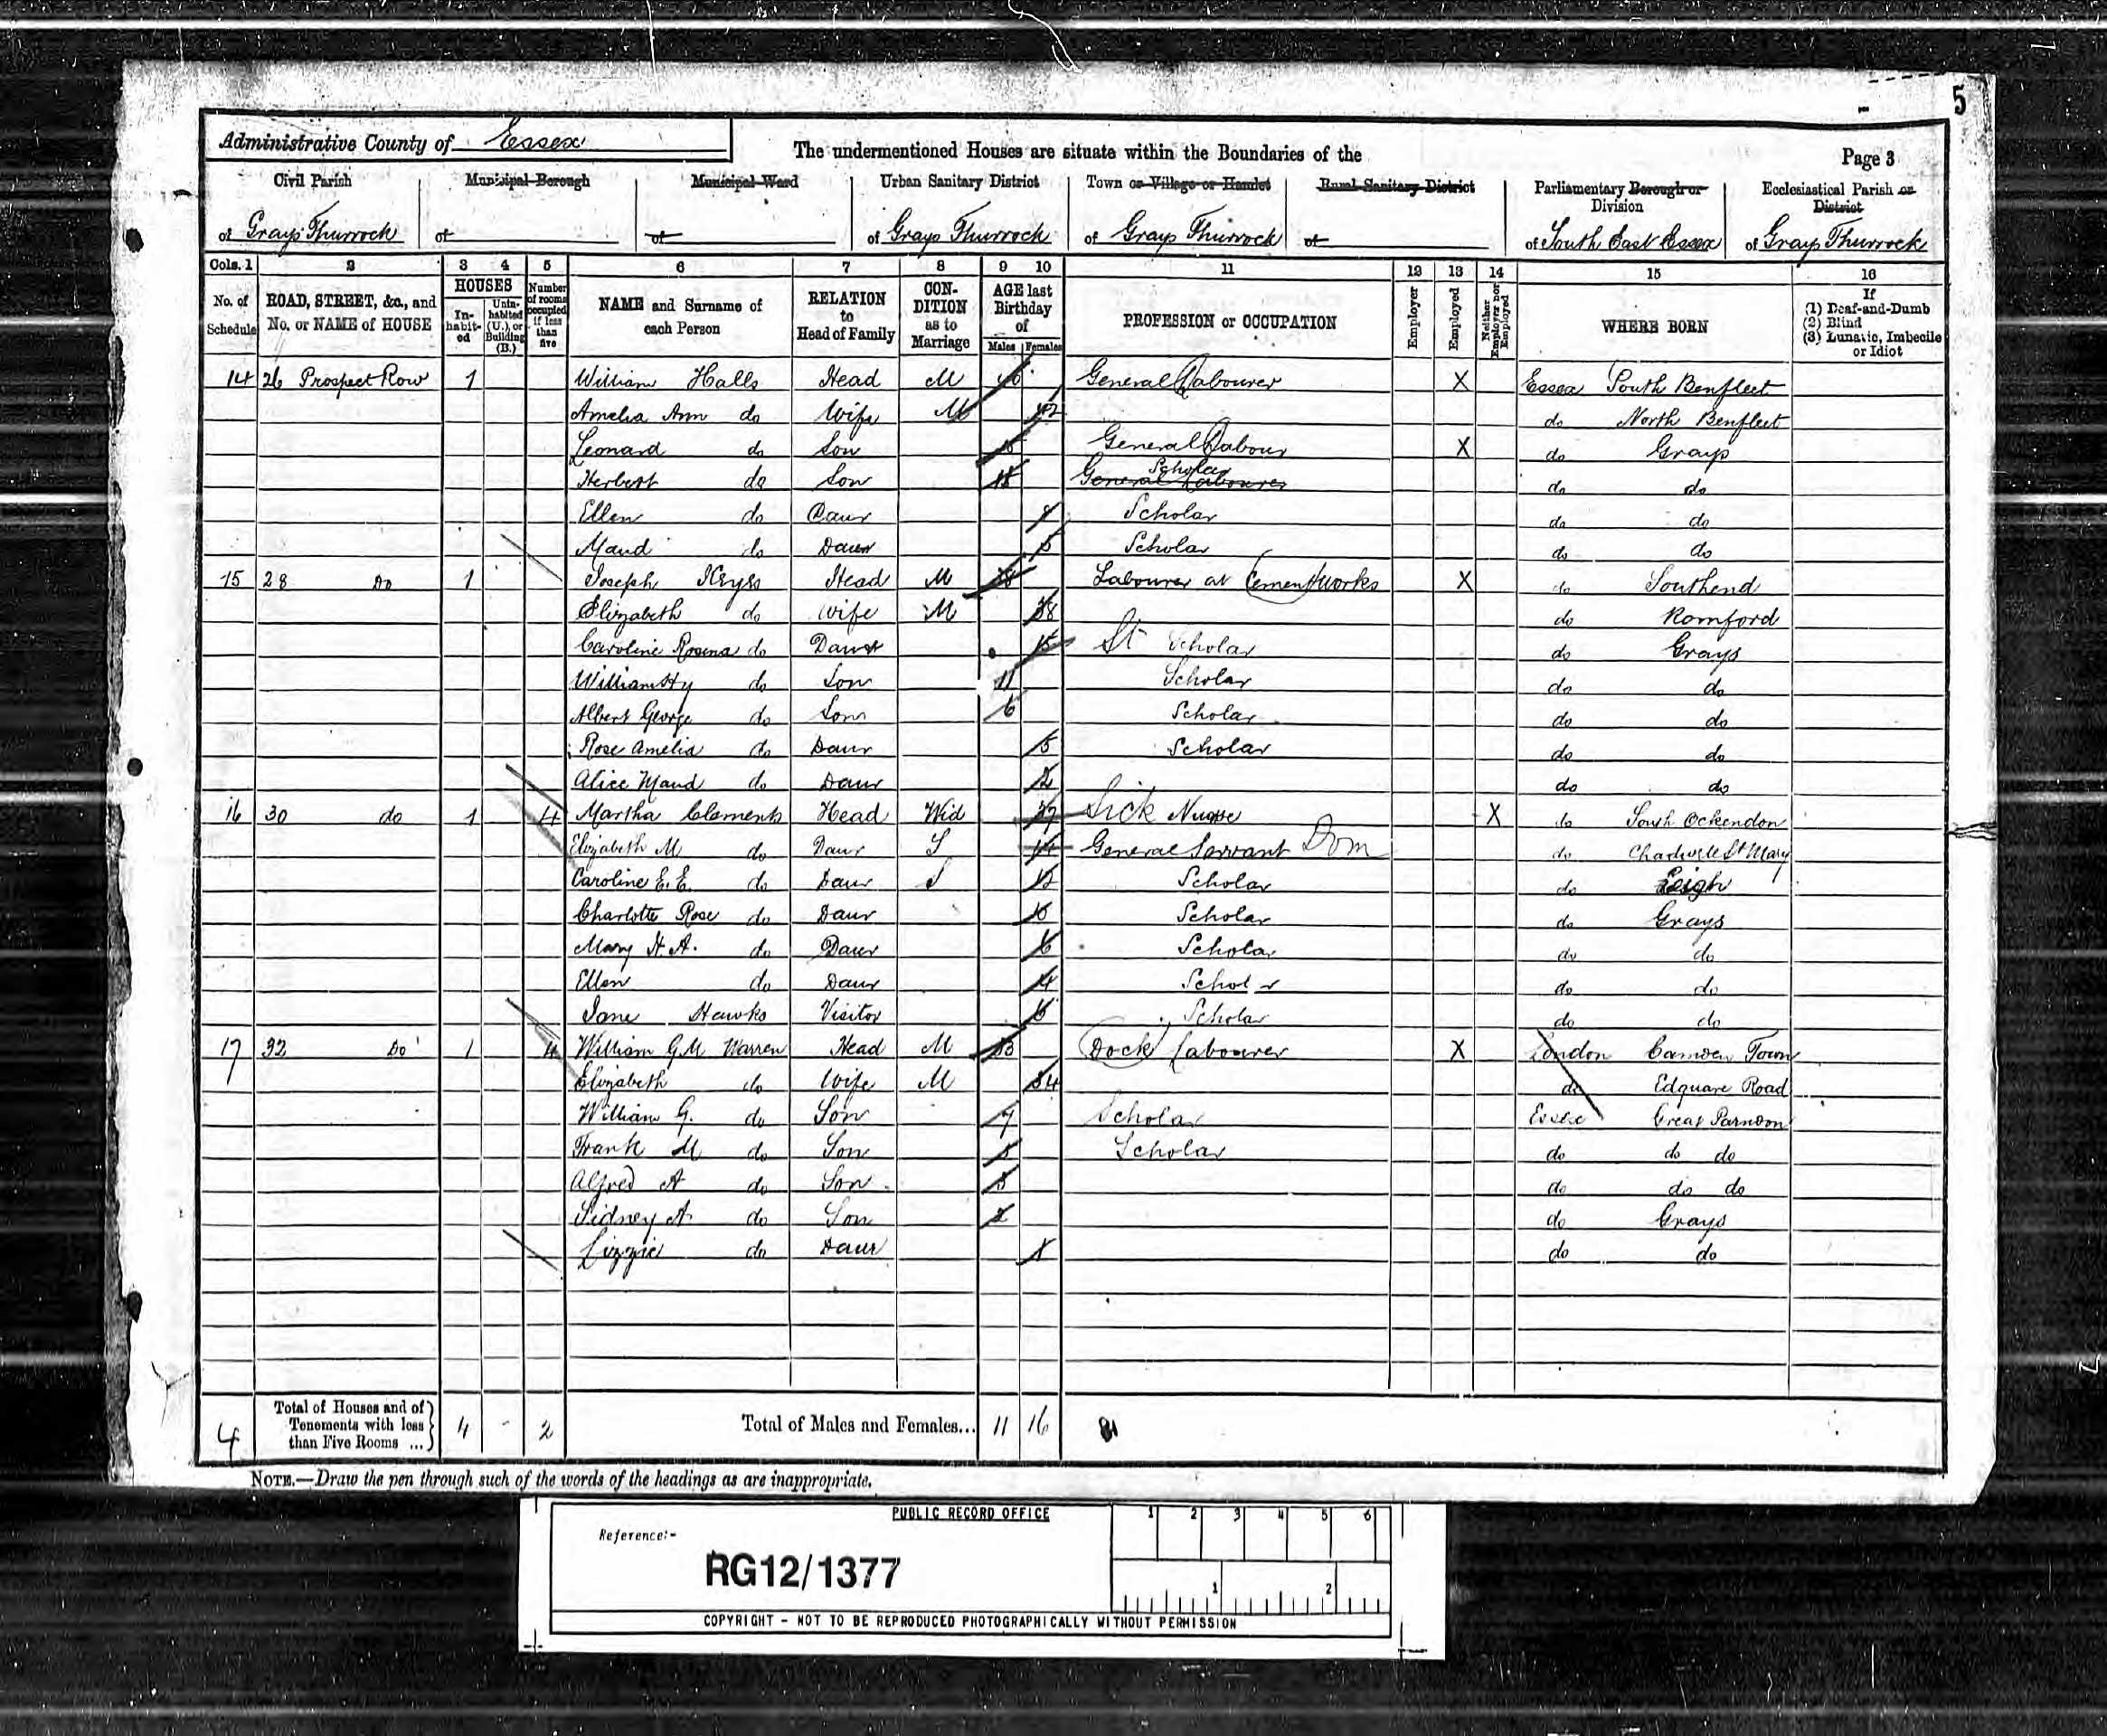 5
Administrative County of Essex
The undermentioned Houses are situate within the Boundaries of the
Page 3
Civil Parish of Grays Thurrock
Municipal Borough of
Municipal Ward of
Urban Sanitary District of Grays Thurrock
Town or Village or Hamlet of Grays Thurrock
Rural Sanitary District of
Parliamentary Borough or Division of South East Essex
Ecclesiastical Parish or District of Grays Thurrock
Cols. 1 2 3 4 5 6 7 8 9 10 11 12 13 14 15 16
No. of Schedule
ROAD, STREET, &c., and No. or NAME of HOUSE
HOUSES
In-habit-ed
Unin-habited (U.), or Building (B.)
Number of rooms occupied if less than five
NAME and Surname of each Person
RELATION to Head of Family
CON-DITION as to Marriage
AGE last Birthday of
Males Females
PROFESSION or OCCUPATION
Employer
Employed
Neither Employer nor Employed
WHERE BORN
If (1) Deaf-and-Dumb (2) Blind (3) Lunatic, Imbecile or Idiot
14 26 Prospect Row 1 William Halls Head M General Labourer X Essex South Benfleet
Amelia Ann do Wife M 42 do North Benfleet
Leonard do Son General Labour X do Grays
Herbert do Son Scholar General Labourer do do
Ellen do Daur Scholar do do
Maud do Daur 5 Scholar do do
15 28 Do 1 Joseph Keyes Head M 38 Labourer at Cement Works X do Southend
Elizabeth do Wife M 38 do Romford
Caroline Rosina do Daur 15 St Scholar do Grays
William Hy do Son 11 Scholar do do
Albert George do Son 6 Scholar do do
Rose Amelia do Daur 5 Scholar do do
Alice Maud do Daur 2 do do
16 30 do 1 4 Martha Clements Head Wid 37 Sick Nurse X do South Ockendon
Elizabeth M do Daur S 14 General Servant Dom do Chadwell St Mary
Caroline E. E. do Daur S 12 Scholar do Leigh
Charlotte Rose do Daur 10 Scholar do Grays
Mary H. A. do Daur 6 Scholar do do
Ellen do Daur 4 Scholar do do
Jane Hawks Visitor 6 Scholar do do
17 32 Do 1 4 William G M Warren Head M 33 Dock Labourer X London Camden Town
Elizabeth do Wife M 34 do Edguare Road
William G. do Son 7 Scholar Essex Great Parndon
Frank M do Son 5 Scholar do do do
Alfred A do Son 3 do do do
Sidney A do Son 2 do Grays
Lizzie do Daur 1 do do
4 Total of Houses and of Tenements with less than Five Rooms ... 4 - 2 Total of Males and Females... 11 16
NOTE.—Draw the pen through such of the words of the headings as are inappropriate.
PUBLIC RECORD OFFICE
1 2 3 4 5 6
Reference:-
RG12/1377
1 2
COPYRIGHT - NOT TO BE REPRODUCED PHOTOGRAPHICALLY WITHOUT PERMISSION